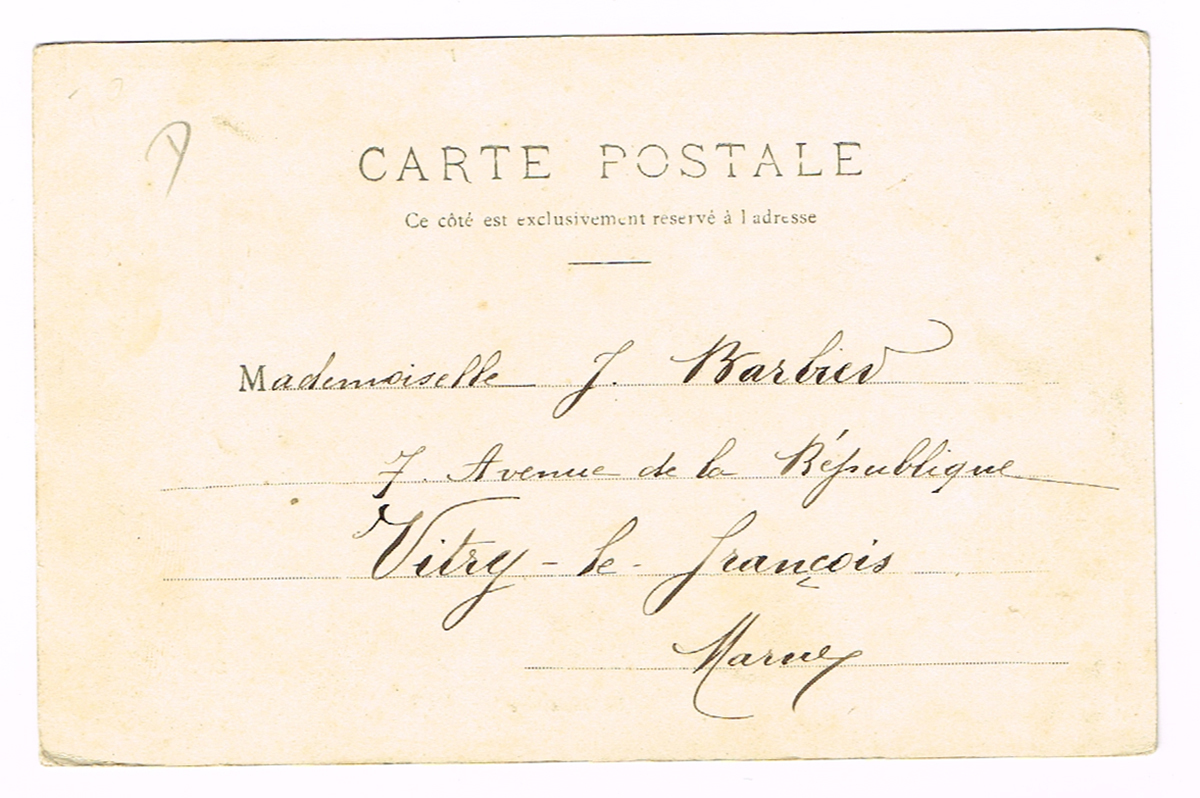 CARTE POSTALE
Ce côté est exclusivement réservé à l'adresse
Mademoiselle J. Barbier
7. Avenue de la République
Vitry-le-François
Marne